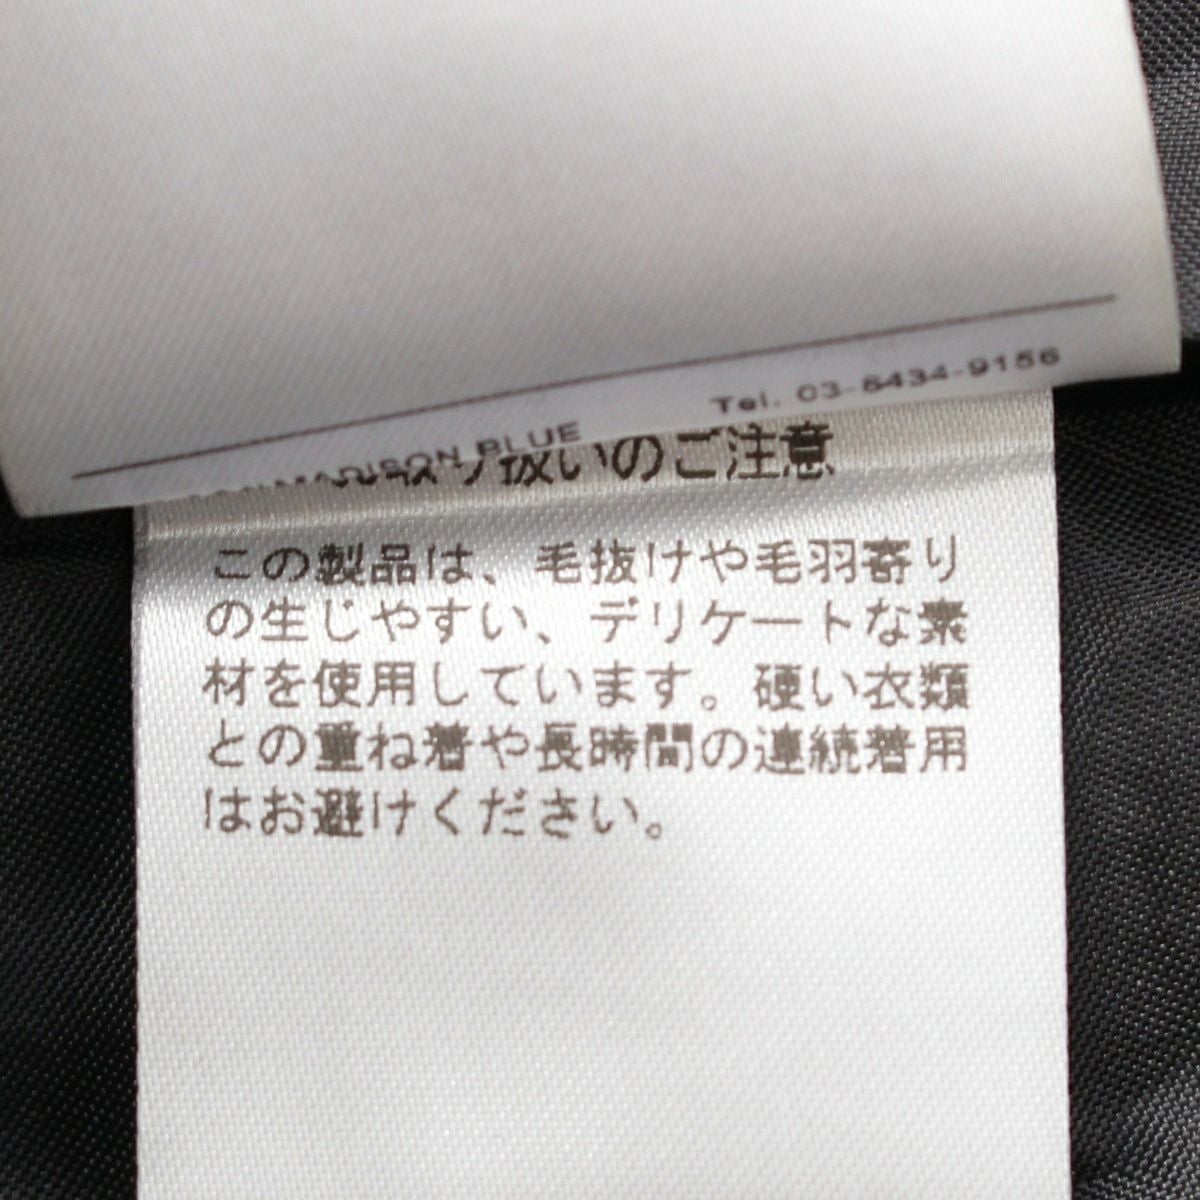 MADISON BLUE
Tel. 03-6434-9156
取り扱いのご注意
この製品は、毛抜けや毛羽寄り
の生じやすい、デリケートな素
材を使用しています。硬い衣類
との重ね着や長時間の連続着用
はお避けください。